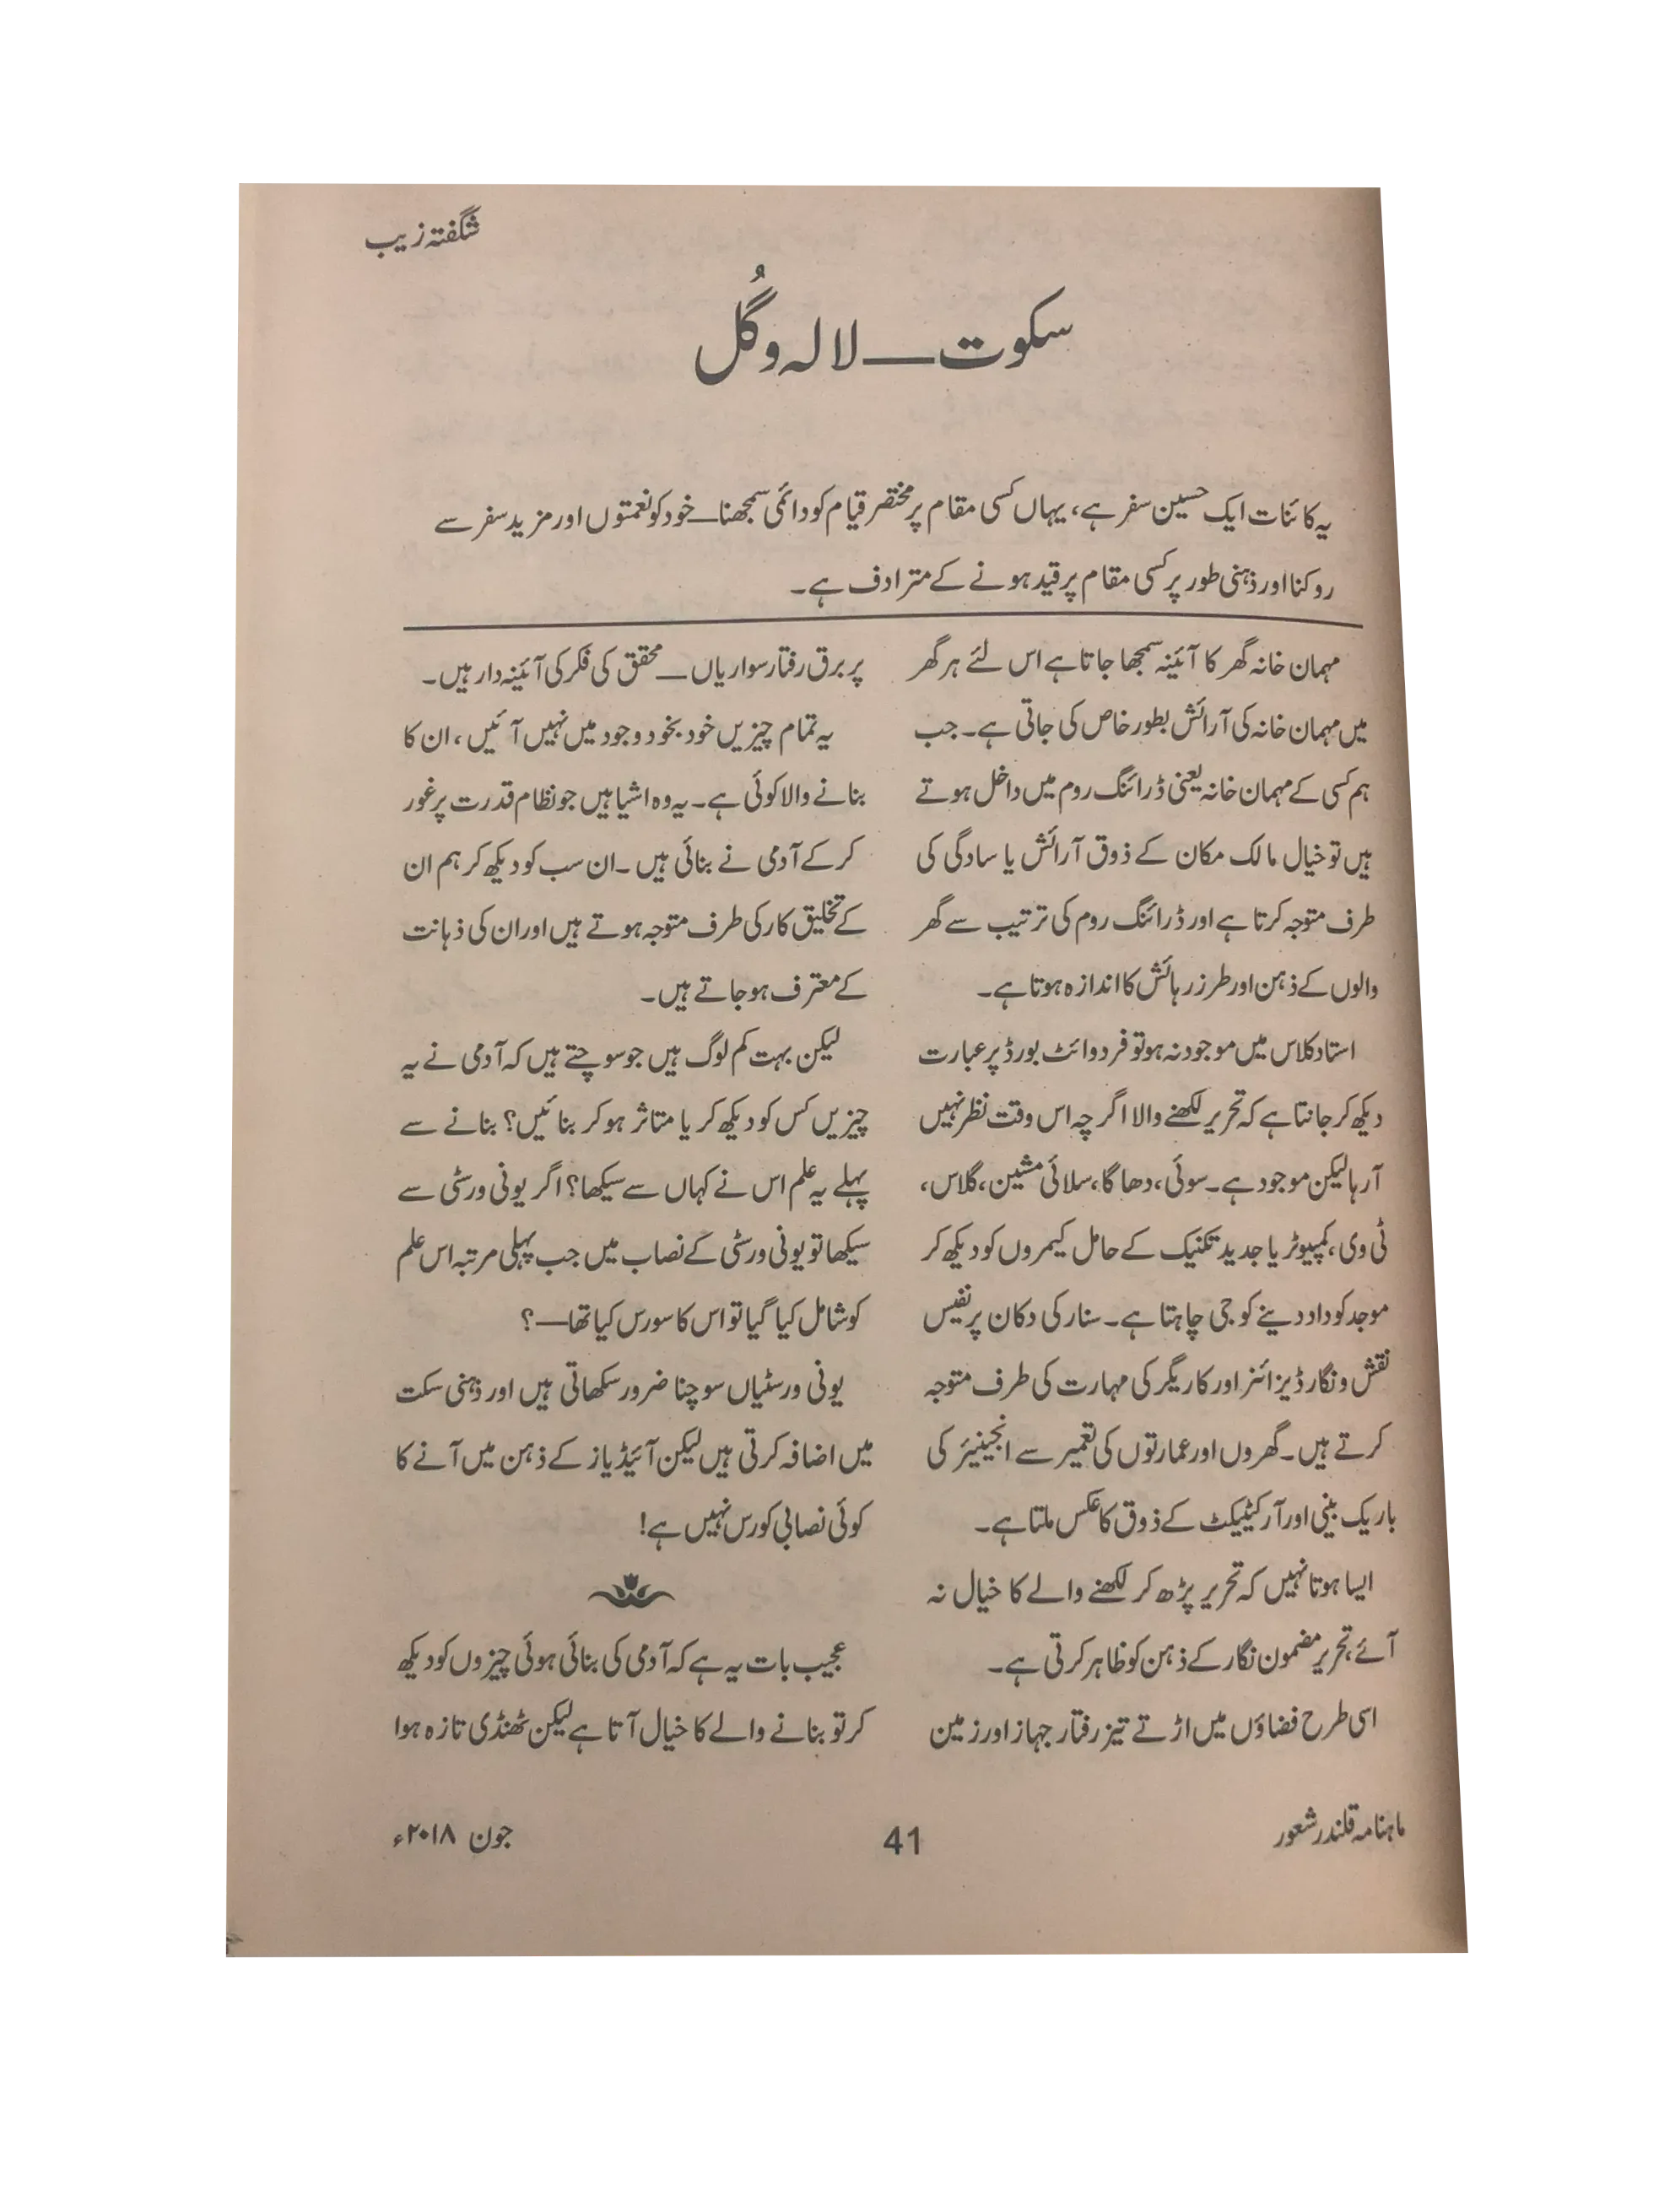 شگفتہ زیب
سکوت — لالہ و گُل
یہ کائنات ایک حسین سفر ہے، یہاں کسی مقام پر مختصر قیام کو دائمی سمجھنا — خود کو نعمتوں اور مزید سفر سے
روکنا اور ذہنی طور پر کسی مقام پر قید ہونے کے مترادف ہے۔
مہمان خانہ گھر کا آئینہ سمجھا جاتا ہے اس لئے ہر گھر
میں مہمان خانہ کی آرائش بطور خاص کی جاتی ہے۔ جب
ہم کسی کے مہمان خانہ یعنی ڈرائنگ روم میں داخل ہوتے
ہیں تو خیال مالک مکان کے ذوق آرائش یا سادگی کی
طرف متوجہ کرتا ہے اور ڈرائنگ روم کی ترتیب سے گھر
والوں کے ذہن اور طرز رہائش کا اندازہ ہوتا ہے۔
استاد کلاس میں موجود نہ ہو تو فرد وائٹ بورڈ پر عبارت
دیکھ کر جانتا ہے کہ تحریر لکھنے والا اگرچہ اس وقت نظر نہیں
آرہا لیکن موجود ہے۔ سوئی، دھاگا، سلائی مشین، گلاس،
ٹی وی، کمپیوٹر یا جدید تکنیک کے حامل کیمروں کو دیکھ کر
موجد کو داد دینے کو جی چاہتا ہے۔ سنار کی دکان پر نفیس
نقش و نگار ڈیزائنر اور کاریگر کی مہارت کی طرف متوجہ
کرتے ہیں۔ گھروں اور عمارتوں کی تعمیر سے انجینیئر کی
باریک بینی اور آرکیٹیکٹ کے ذوق کا عکس ملتا ہے۔
ایسا ہوتا نہیں کہ تحریر پڑھ کر لکھنے والے کا خیال نہ
آئے، تحریر مضمون نگار کے ذہن کو ظاہر کرتی ہے۔
اسی طرح فضاؤں میں اڑتے تیز رفتار جہاز اور زمین
پر برق رفتار سواریاں — محقق کی فکر کی آئینہ دار ہیں۔
یہ تمام چیزیں خود بخود وجود میں نہیں آئیں، ان کا
بنانے والا کوئی ہے۔ یہ وہ اشیا ہیں جو نظام قدرت پر غور
کر کے آدمی نے بنائی ہیں۔ ان سب کو دیکھ کر ہم ان
کے تخلیق کار کی طرف متوجہ ہوتے ہیں اور ان کی ذہانت
کے معترف ہو جاتے ہیں۔
لیکن بہت کم لوگ ہیں جو سوچتے ہیں کہ آدمی نے یہ
چیزیں کس کو دیکھ کر یا متاثر ہو کر بنائیں؟ بنانے سے
پہلے یہ علم اس نے کہاں سے سیکھا؟ اگر یونی ورسٹی سے
سیکھا تو یونی ورسٹی کے نصاب میں جب پہلی مرتبہ اس علم
کو شامل کیا گیا تو اس کا سورس کیا تھا —؟
یونی ورسٹیاں سوچنا ضرور سکھاتی ہیں اور ذہنی سکت
میں اضافہ کرتی ہیں لیکن آئیڈیاز کے ذہن میں آنے کا
کوئی نصابی کورس نہیں ہے!
عجیب بات یہ ہے کہ آدمی کی بنائی ہوئی چیزوں کو دیکھ
کر تو بنانے والے کا خیال آتا ہے لیکن ٹھنڈی تازہ ہوا
ماہنامہ قلندر شعور
41
جون ۲۰۱۸ء